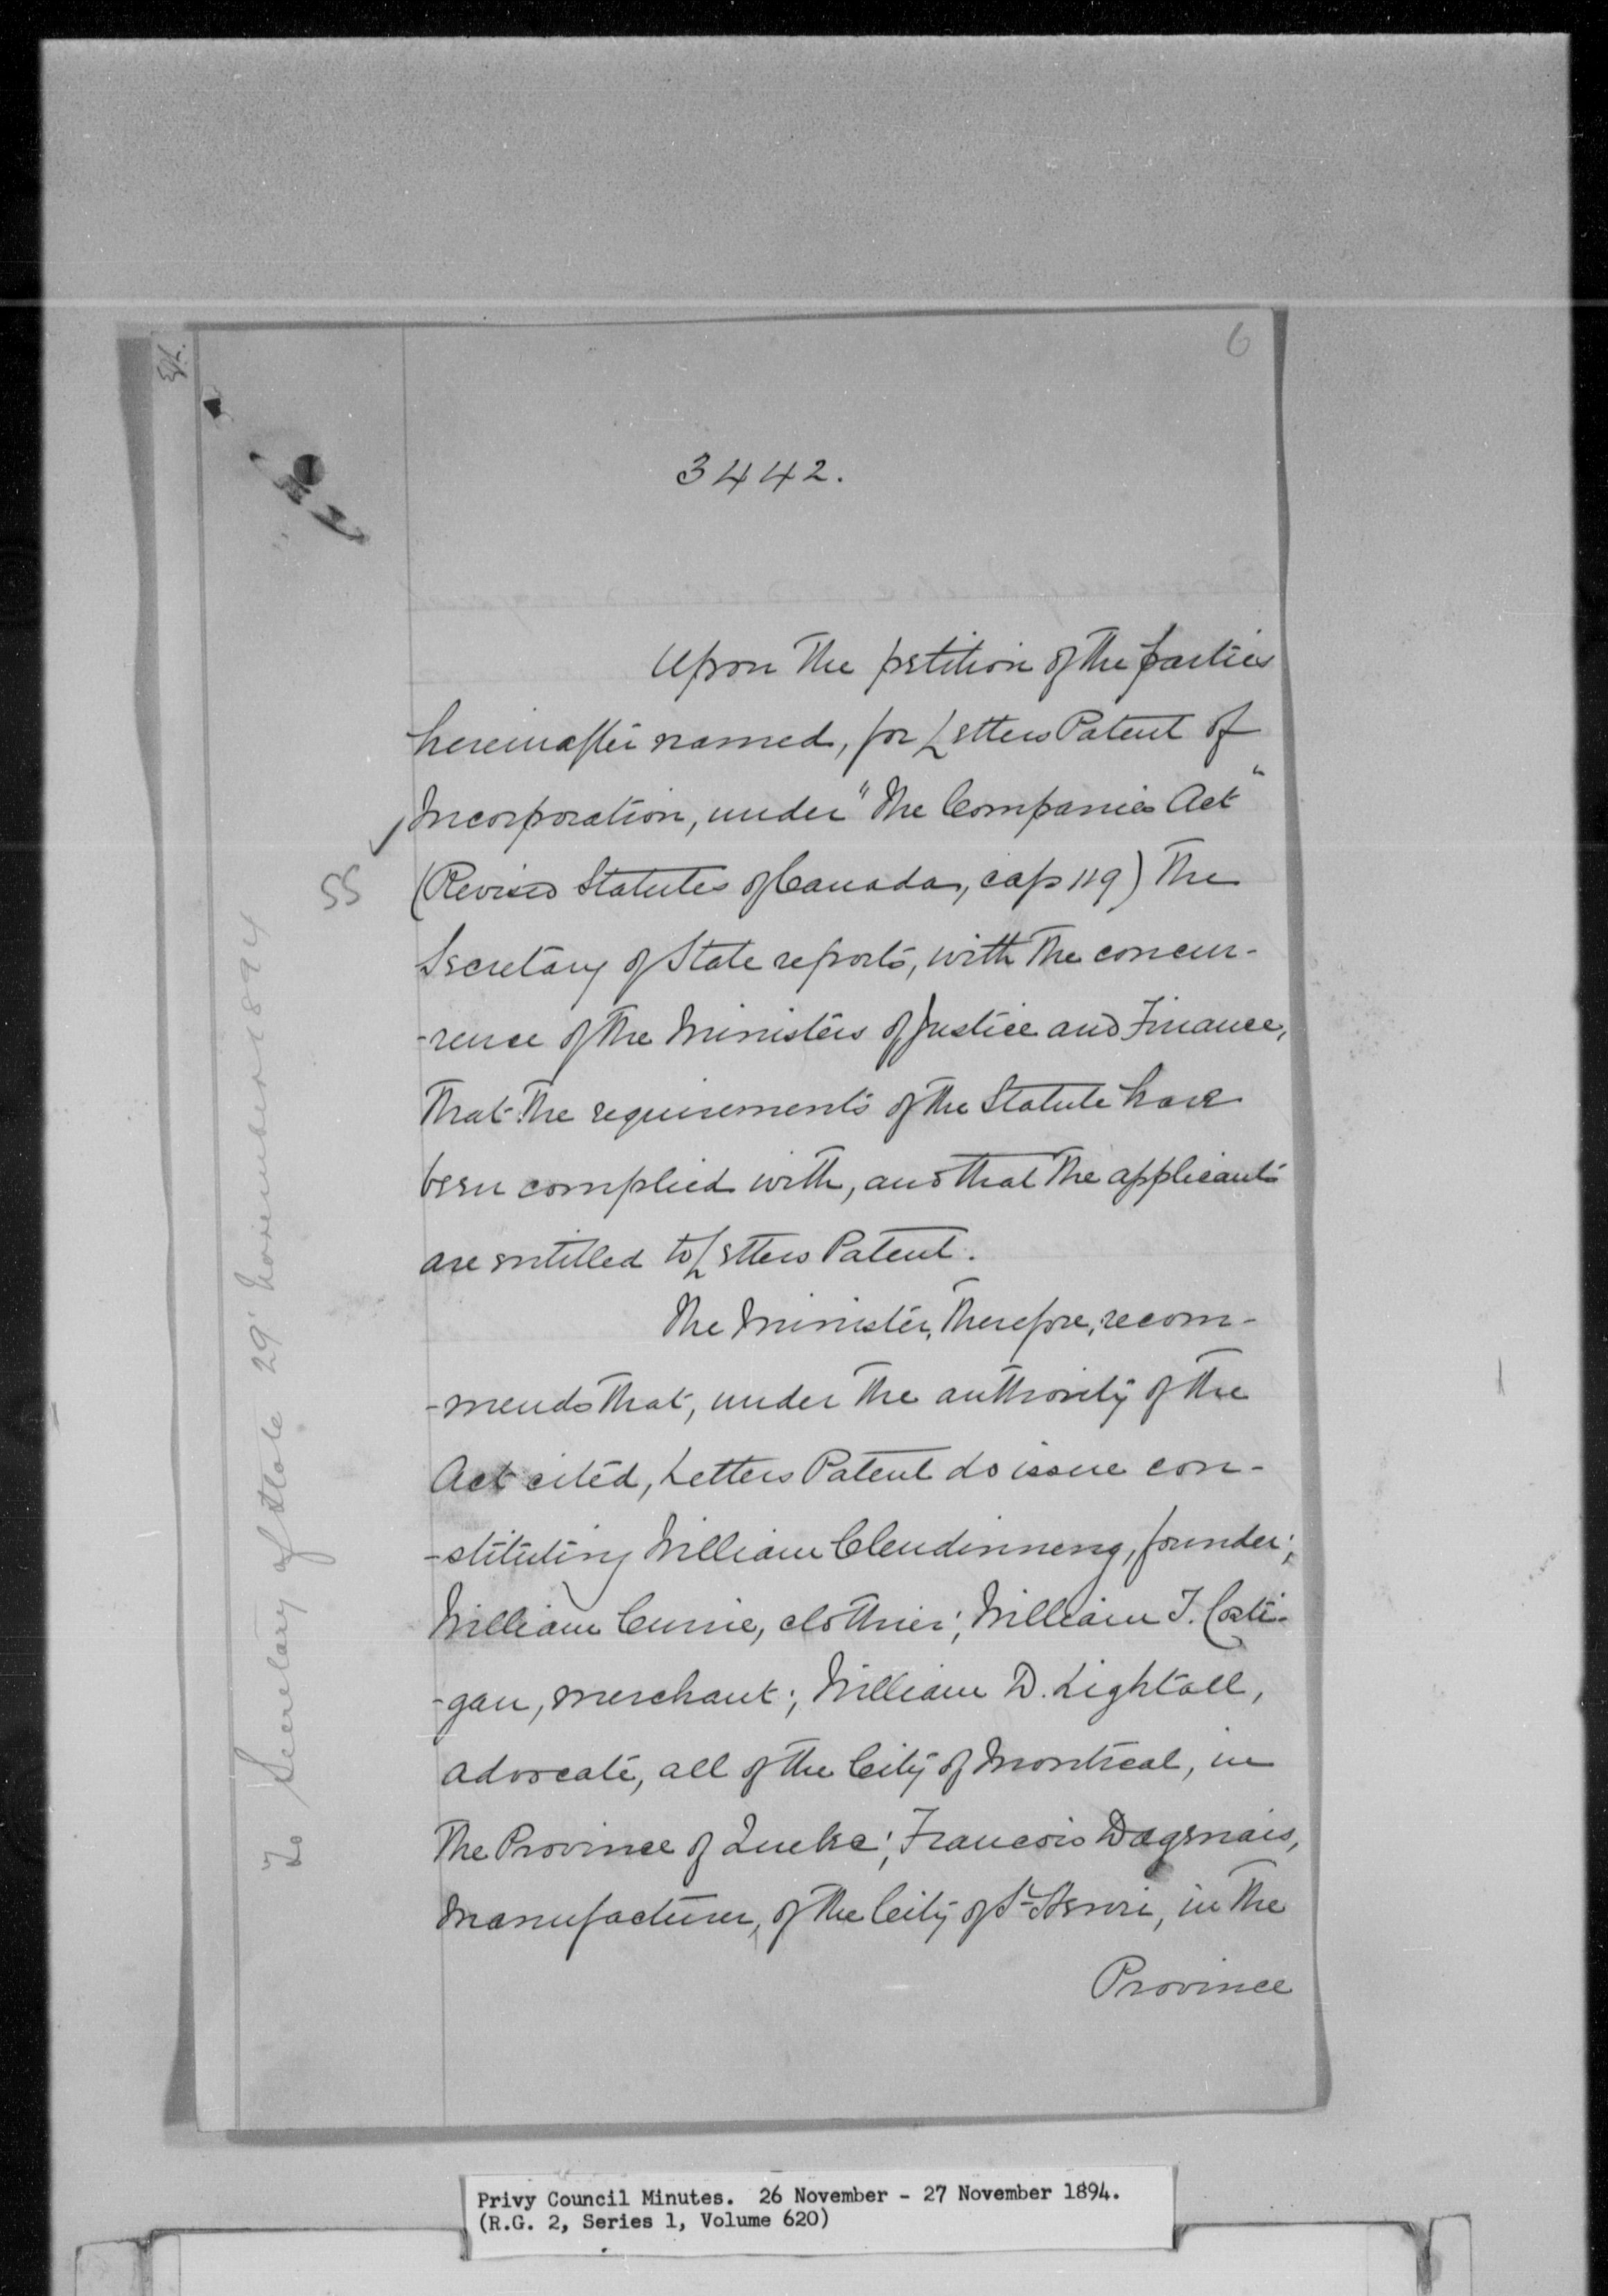 6
3442.
Upon the petition of the parties
hereinafter named, for Letters Patent of
Incorporation, under "The Companies Act"
(Revised Statutes of Canada, cap 119) the
Secretary of State reports, with the concur-
-rence of the Ministers of Justice and Finance,
that the requirements of the Statute have
been complied with, and that the applicants
are entitled to Letters Patent.
The Minister, therefore, recom-
-mends that, under the authority of the
Act cited, Letters Patent do issue con-
-stituting William Clendinneng, founder;
William Currie, clothier; William T. Costi-
-gan, merchant; William D. Lightall,
advocate, all of the City of Montreal, in
the Province of Quebec; Francois Dagenais,
manufacturer, of the City of St Henri, in the
Province
SS
To Secretary of State 29' November 1894
Privy Council Minutes. 26 November - 27 November 1894.
(R.G. 2, Series 1, Volume 620)